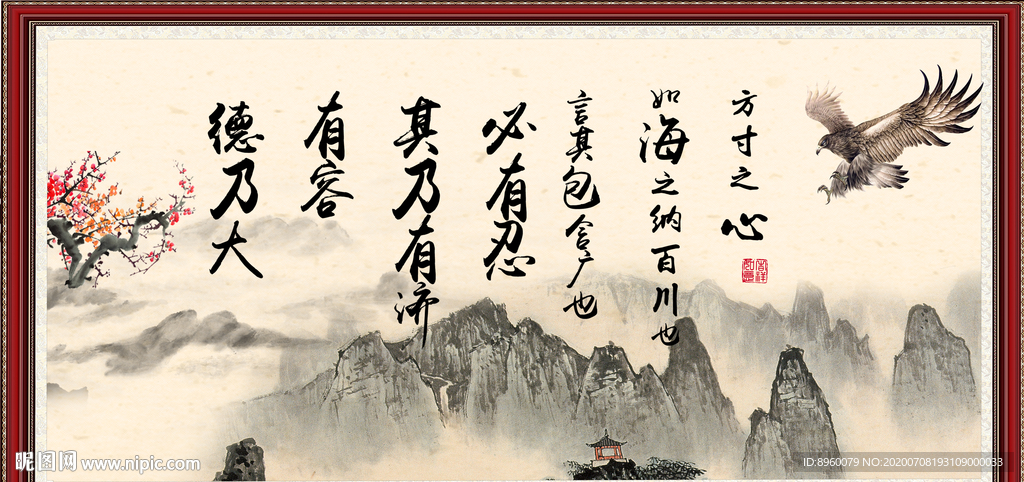 方寸之心
如海之纳百川也
言其包含广也
必有忍
其乃有济
有容
德乃大
吉祥如意
昵图网 www.nipic.com
ID:8960079 NO:20200708193109000033